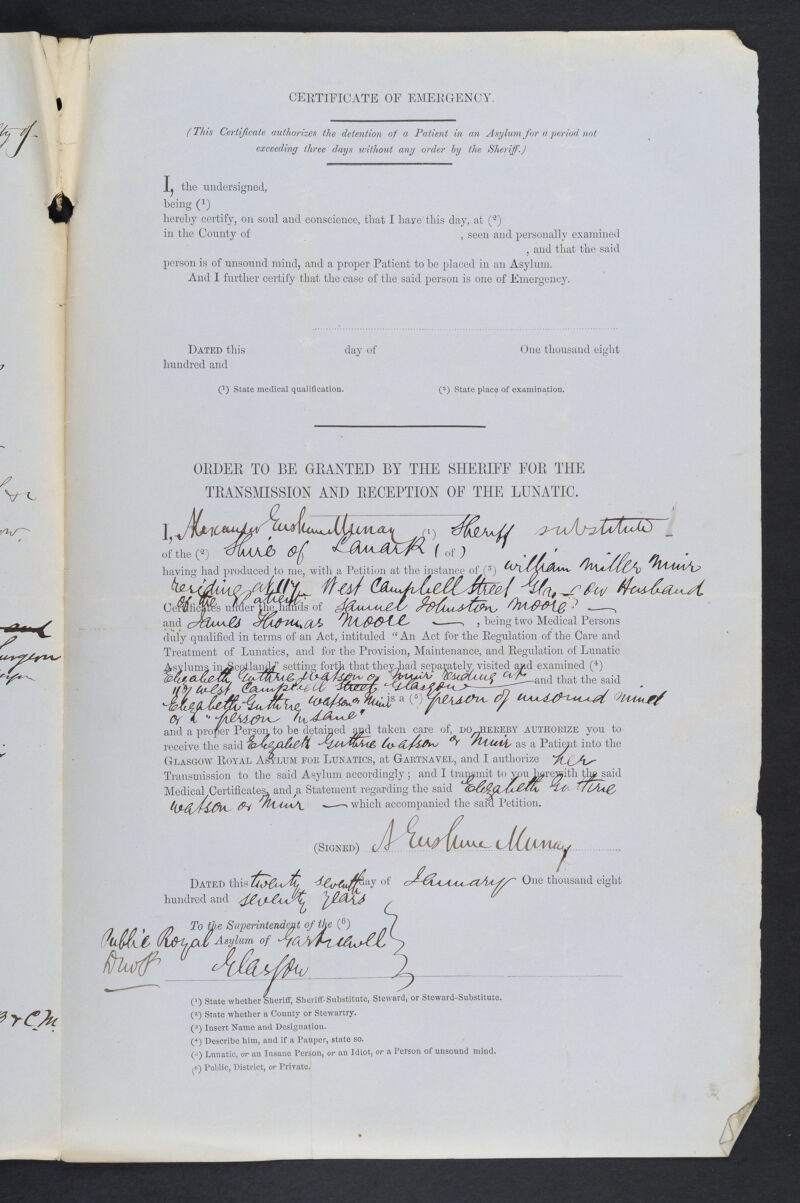 ty of
CERTIFICATE OF EMERGENCY.
(This Certificate authorizes the detention of a Patient in an Asylum for a period not
exceeding three days without any order by the Sheriff.)
I, the undersigned,
being (1)
hereby certify, on soul and conscience, that I have this day, at (2)
in the County of , seen and personally examined
, and that the said
person is of unsound mind, and a proper Patient to be placed in an Asylum.
And I further certify that the case of the said person is one of Emergency.
DATED this day of One thousand eight
hundred and
(1) State medical qualification. (2) State place of examination.
ORDER TO BE GRANTED BY THE SHERIFF FOR THE
TRANSMISSION AND RECEPTION OF THE LUNATIC.
I, Alexander Erskine Murray (1) Sheriff substitute
of the (2) Shire of Lanark (of)
having had produced to me, with a Petition at the instance of (3) William Miller Muir
residing at 117 West Campbell Street Glasgow Husband
of the patient
Certificates under the hands of Samuel Johnston Moore
and James Thomas Moore —, being two Medical Persons
duly qualified in terms of an Act, intituled "An Act for the Regulation of the Care and
Treatment of Lunatics, and for the Provision, Maintenance, and Regulation of Lunatic
Asylums in Scotland," setting forth that they had separately visited and examined (4)
Elizabeth Guthrie Watson or Muir residing at
117 West Campbell Street Glasgow — and that the said
Elizabeth Guthrie Watson or Muir is a (5) person of unsound mind
or a "person insane"
and a proper Person to be detained and taken care of, DO HEREBY AUTHORIZE you to
receive the said Elizabeth Guthrie Watson or Muir as a Patient into the
GLASGOW ROYAL ASYLUM FOR LUNATICS, AT GARTNAVEL, and I authorize her
Transmission to the said Asylum accordingly; and I transmit to you herewith the said
Medical Certificates, and a Statement regarding the said Elizabeth Guthrie
Watson or Muir — which accompanied the said Petition.
(SIGNED) A Erskine Murray
DATED this twenty seventh day of January One thousand eight
hundred and seventy years
To the Superintendent of the (6)
Public Royal Asylum of Gartnavel
Glasgow
(1) State whether Sheriff, Sheriff-Substitute, Steward, or Steward-Substitute.
(2) State whether a County or Stewartry.
(3) Insert Name and Designation.
(4) Describe him, and if a Pauper, state so.
(5) Lunatic, or an Insane Person, or an Idiot, or a Person of unsound mind.
(6) Public, District, or Private.
and
Surgeon
& C.M.